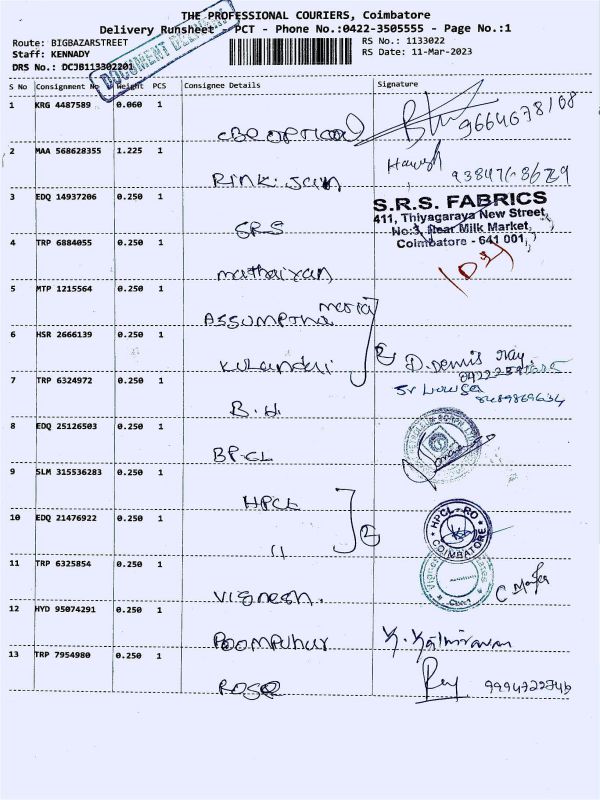 THE PROFESSIONAL COURIERS, Coimbatore
Delivery Runsheet - PCT - Phone No.:0422-3505555 - Page No.:1
Route: BIGBAZARSTREET
RS No.: 1133022
Staff: KENNADY
RS Date: 11-Mar-2023
DRS No.: DCJB113302201
DOCUMENT DELIVERY
S No Consignment No Weight PCS Consignee Details Signature
1 KRG 4487589 0.060 1
CBE OPTICAL
2 MAA 568628355 1.225 1
Rinki Jain
3 EDQ 14937206 0.250 1
S.R.S. FABRICS
411, Thiyagaraya New Street,
No:3, Near Milk Market,
Coimbatore - 641 001,
SRS
4 TRP 6884055 0.250 1
mathaiyan
5 MTP 1215564 0.250 1
maria
ASSUMPTHA
6 HSR 2666139 0.250 1
Kulandai
2
7 TRP 6324972 0.250 1
B.H
8 EDQ 25126503 0.250 1
BPCL
9 SLM 315536283 0.250 1
HPCL
10 EDQ 21476922 0.250 1
"
2
HPCL - RO
COIMBATORE
11 TRP 6325854 0.250 1
Vignesh.
12 HYD 95074291 0.250 1
Poompuhur
13 TRP 7954980 0.250 1
ROSE